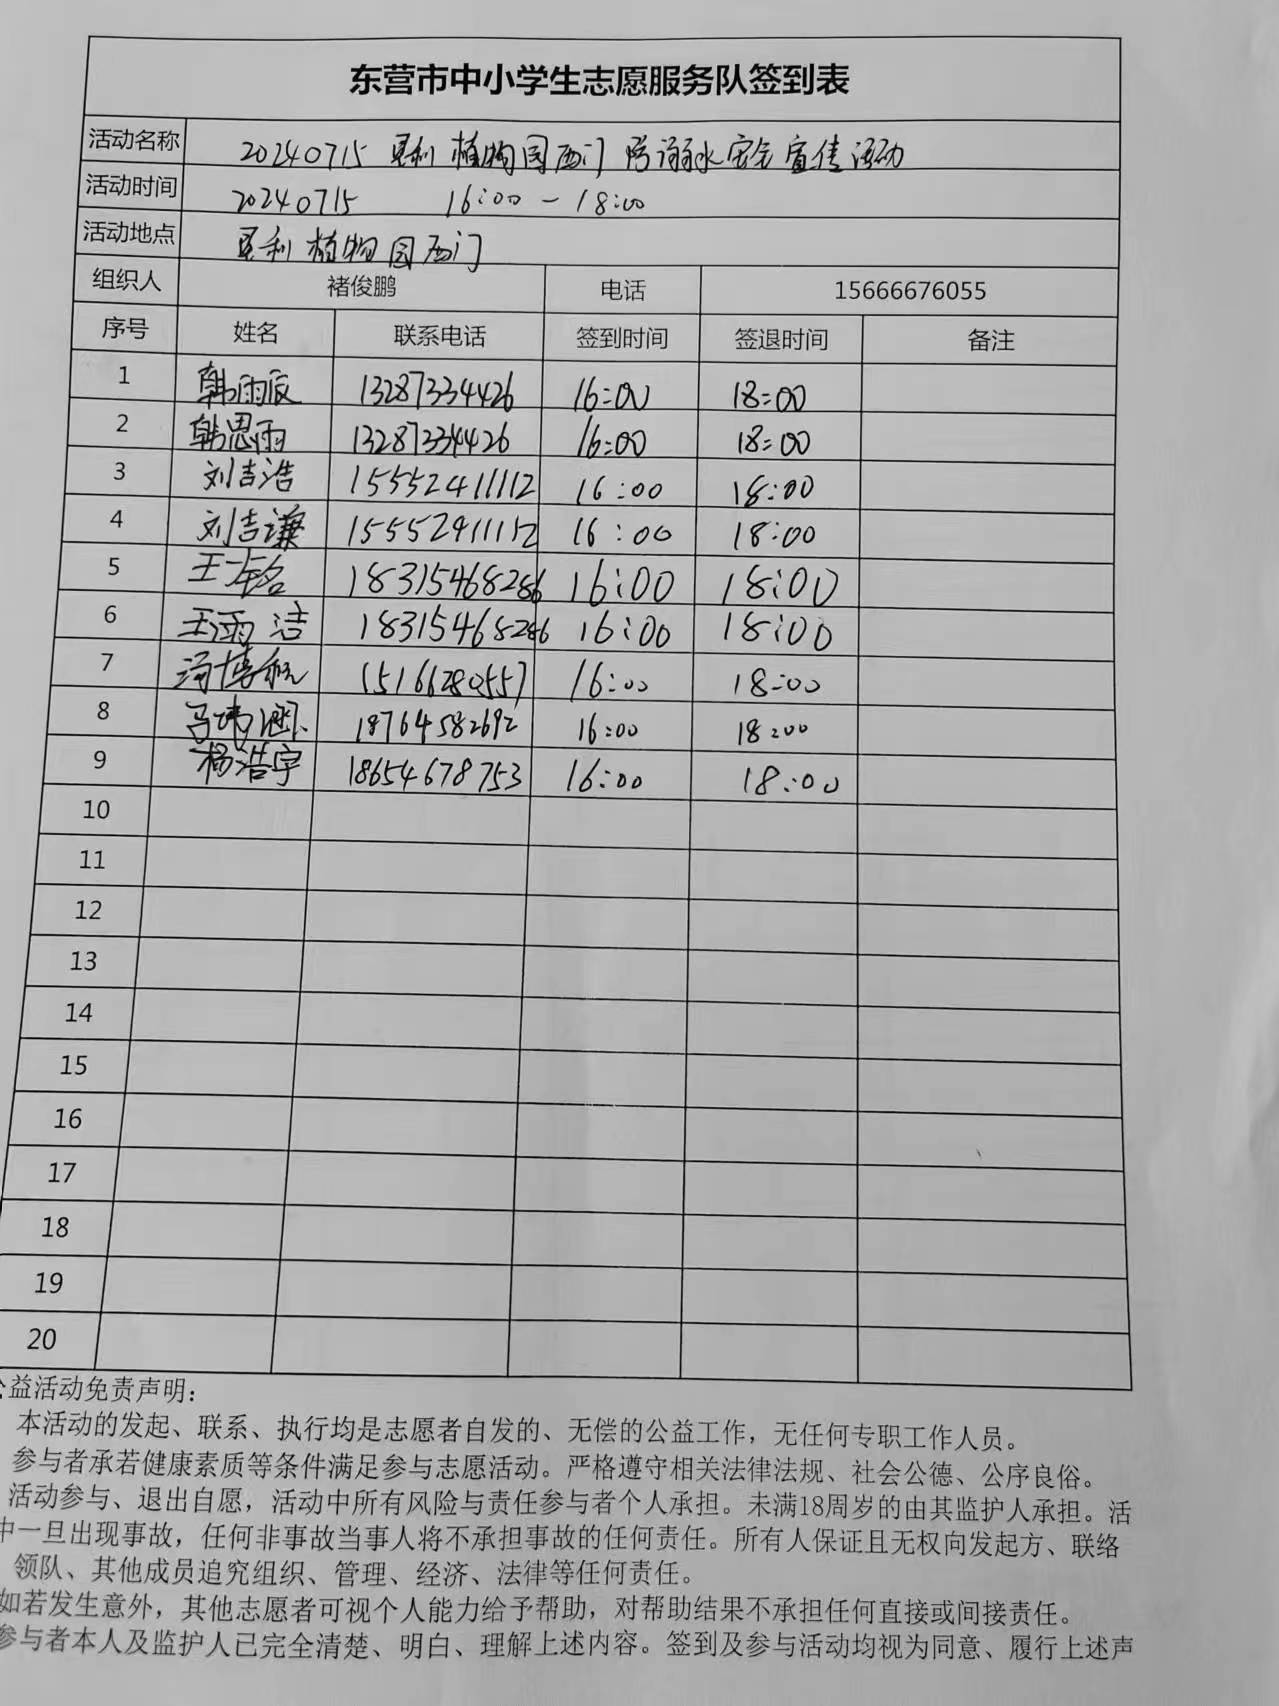 东营市中小学生志愿服务队签到表
活动名称 20240715 垦利植物园西门防溺水安全宣传活动
活动时间 20240715 16:00-18:00
活动地点 垦利植物园西门
组织人 褚俊鹏 电话 15666676055
序号 姓名 联系电话 签到时间 签退时间 备注
1 韩雨辰 13287334426 16:00 18:00
2 韩思雨 13287334426 16:00 18:00
3 刘吉浩 15552411112 16:00 18:00
4 刘吉谦 15552411112 16:00 18:00
5 18315468286 16:00 18:00
6 王雨洁 18315468286 16:00 18:00
7 15166280557 16:00 18:00
8 18764582692 16:00 18:00
9 杨浩宇 18654678753 16:00 18:00
10
11
12
13
14
15
16
17
18
19
20
公益活动免责声明：
本活动的发起、联系、执行均是志愿者自发的、无偿的公益工作，无任何专职工作人员。
参与者承若健康素质等条件满足参与志愿活动。严格遵守相关法律法规、社会公德、公序良俗。
活动参与、退出自愿，活动中所有风险与责任参与者个人承担。未满18周岁的由其监护人承担。活
中一旦出现事故，任何非事故当事人将不承担事故的任何责任。所有人保证且无权向发起方、联络
领队、其他成员追究组织、管理、经济、法律等任何责任。
如若发生意外，其他志愿者可视个人能力给予帮助，对帮助结果不承担任何直接或间接责任。
参与者本人及监护人已完全清楚、明白、理解上述内容。签到及参与活动均视为同意、履行上述声